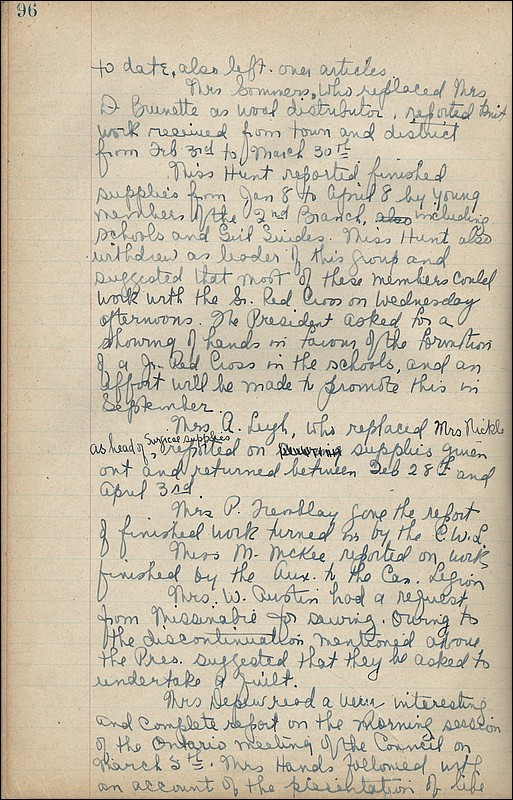 96
to date, also left over articles.
Mrs Sommers, who replaced Mrs
D Brunette as wool distributor, reported knit
work received from town and district
from Feb 3rd to March 30th
Miss Hunt reported finished
supplies from Jan 8 to April 8 by young
members of the 2nd Branch, also including
schools and Girl Guides. Miss Hunt also
withdrew as leader of this group and
suggested that most of these members could
work with the Sr. Red Cross on Wednesday
afternoons. The President asked for a
showing of hands in favour of the formation
of a Jr. Red Cross in the schools, and an
effort will be made to promote this in
September.
Mrs. A. Leigh, who replaced Mrs Nickle
as head of Surgical supplies, reported on supplies given
out and returned between Feb 28th and
April 3rd.
Mrs P. Tremblay gave the report
of finished work turned in by the C.W.L.
Miss M. McKee reported on work
finished by the Aux. to the Can. Legion
Mrs. W. Austin had a request
from Missinabie for sewing. Owing to
the discontinuation mentioned above
the Pres. suggested that they be asked to
undertake a quilt.
Mrs Depew read a very interesting
and complete report on the morning session
of the Ontario meeting of the Council on
March 5th. Mrs Hands followed with
an account of the presentation of life